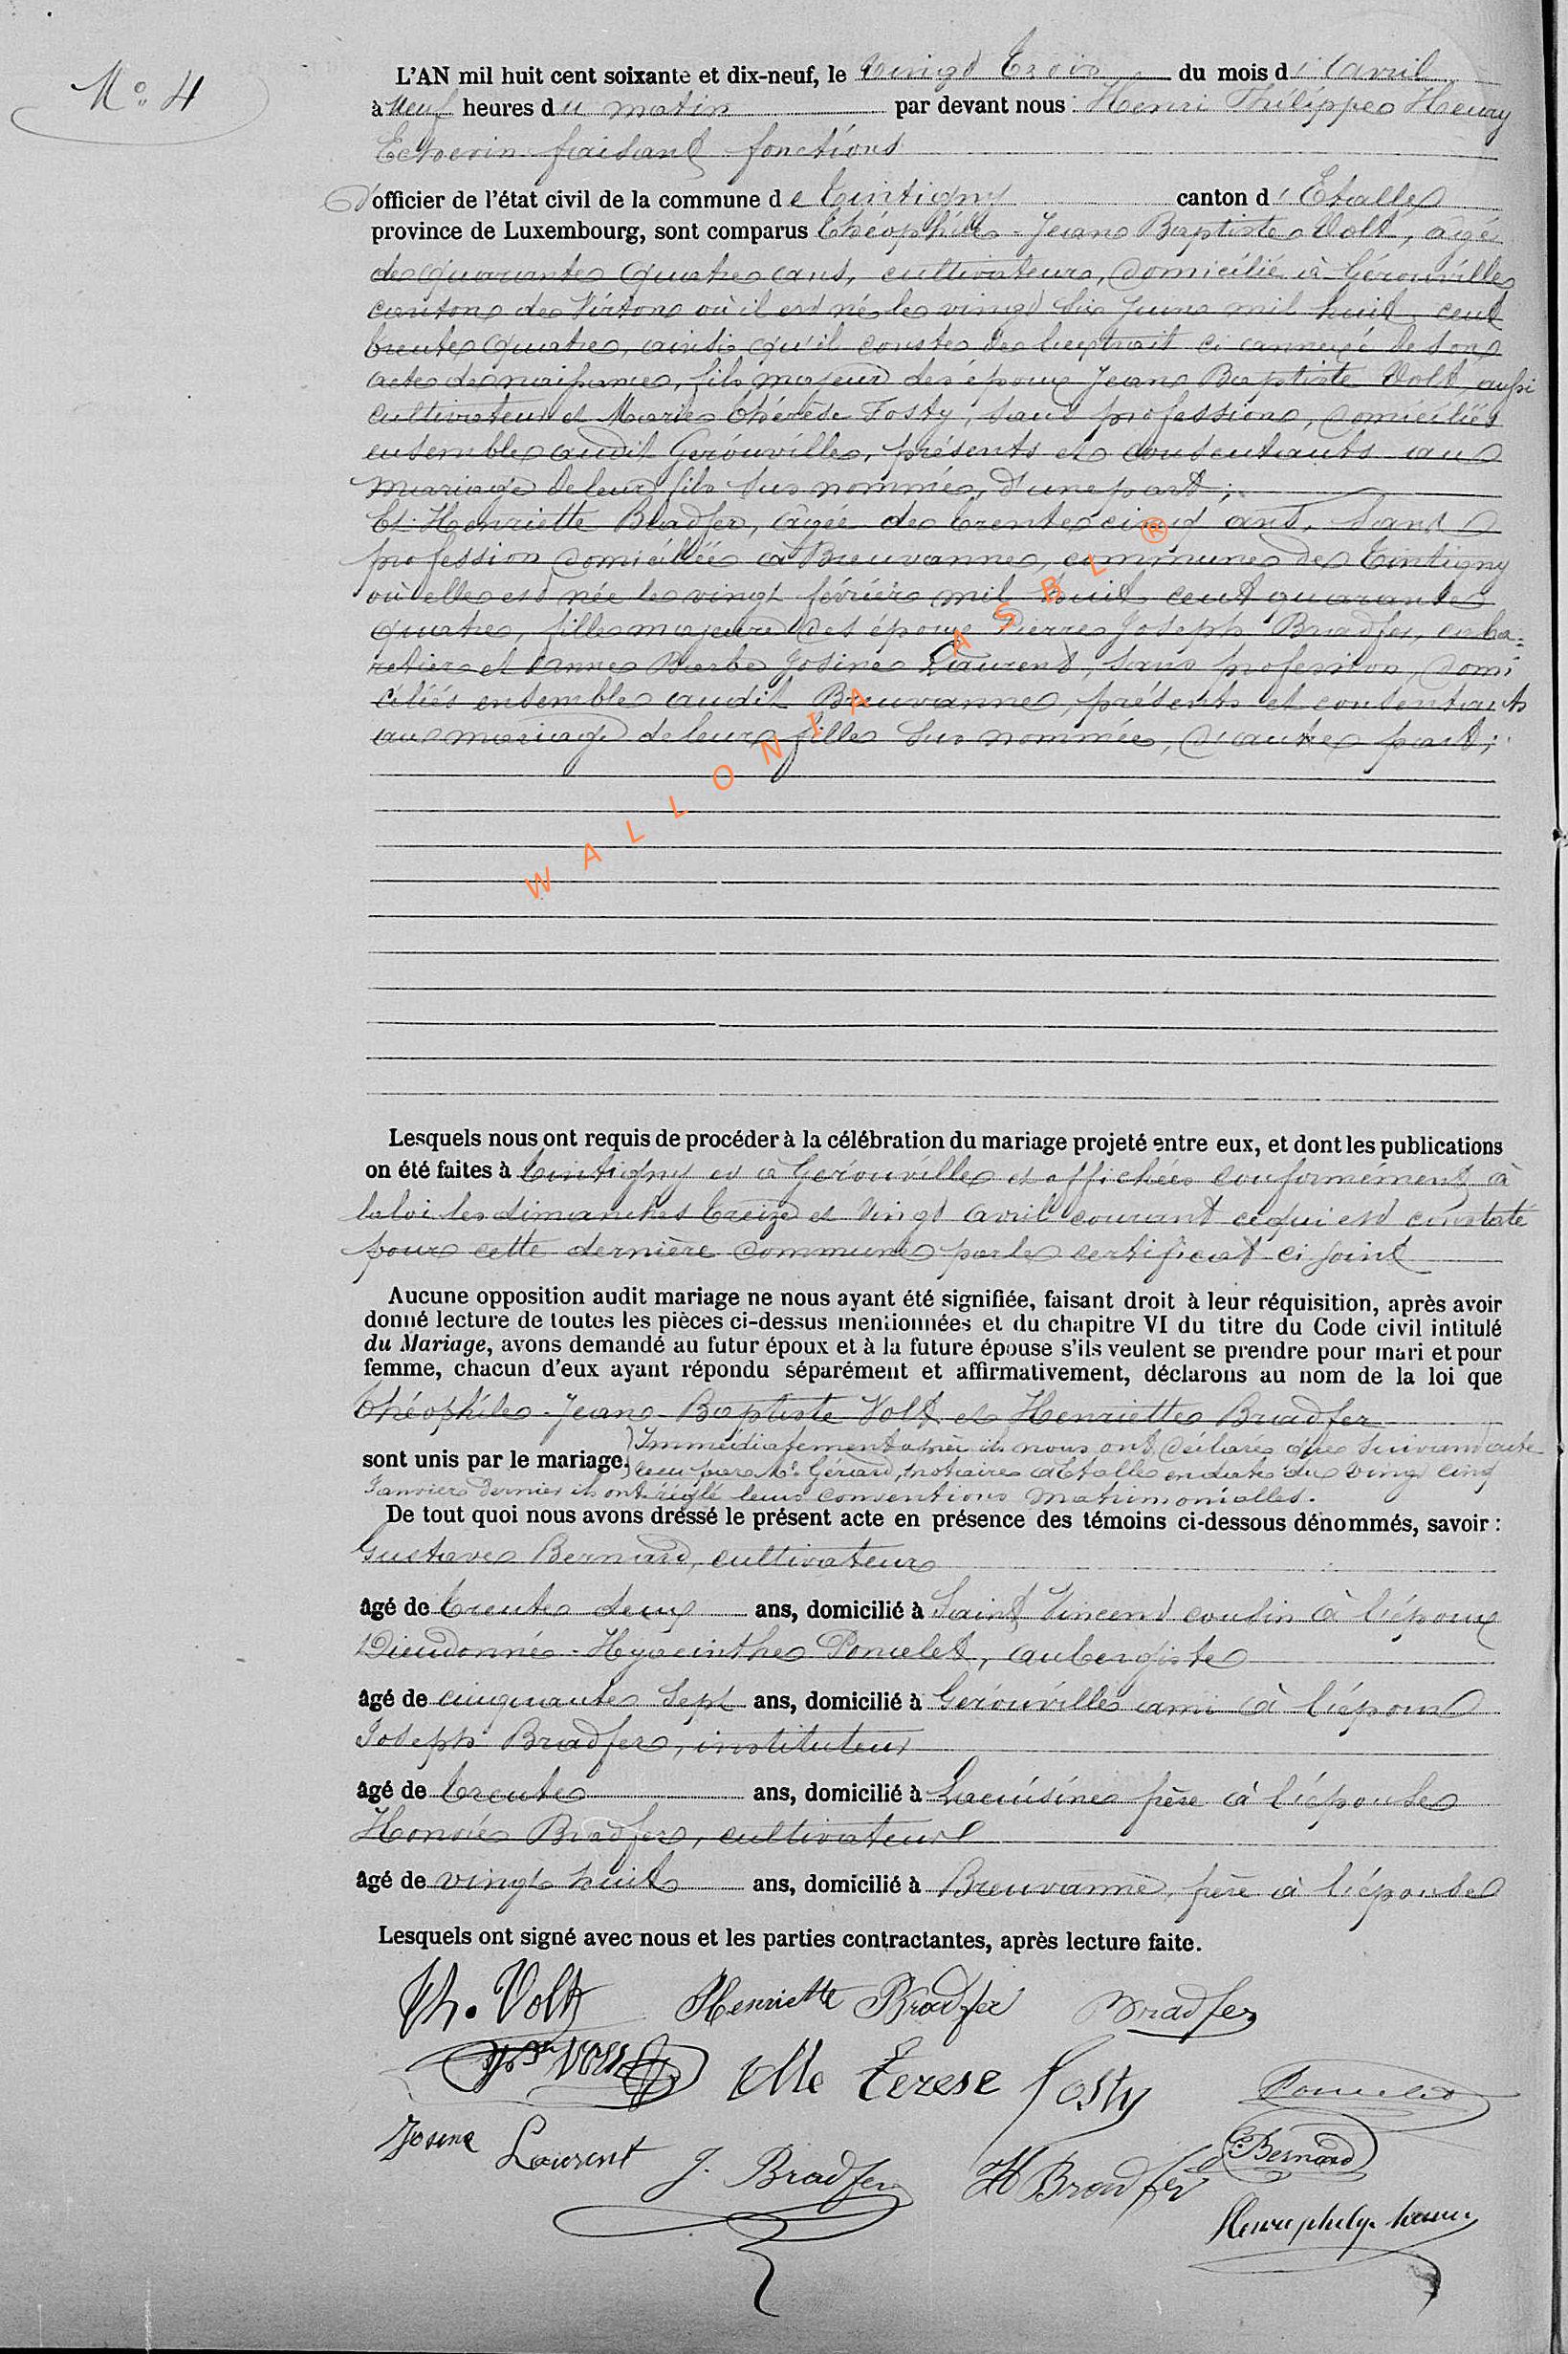 No. 4
L'AN mil huit cent soixante et dix-neuf, le vingt trois du mois d'avril
à neuf heures du matin par devant nous Henri Philippe Henry
Echevin faisant fonctions
d'officier de l'état civil de la commune de Tintigny canton d'Etalle
province de Luxembourg, sont comparus Théophile-Jean Baptiste Voltz, âgé
de quarante quatre ans, cultivateur, domicilié à Gérouville
canton de Virton où il est né le vingt six Juin mil huit cent
trente quatre, ainsi qu'il conste de l'extrait ci annexé de son
acte de naissance, fils majeur des époux Jean Baptiste Voltz, aussi
cultivateur et Marie Thérèse Fosty, sans profession, domiciliés
ensemble audit Gérouville, présents et consentants au
mariage de leur fils sus nommé, d'une part;
Et Henriette Bradfer, âgée de trente cinq ans, sans
profession domiciliée à Breuvanne, commune de Tintigny
où elle est née le vingt février mil huit cent quarante
quatre, fille majeure des époux Pierre Joseph Bradfer, cha-
retier et Anne Barbe Josine Laurent, sans profession, domi
ciliés ensemble audit Breuvanne, présents et consentants
au mariage de leur fille sus nommée, d'autre part;
WALLONIA ASBL ®
Lesquels nous ont requis de procéder à la célébration du mariage projeté entre eux, et dont les publications
on été faites à Tintigny et à Gérouville et affichées conformément à
la loi les dimanches treize et vingt avril courant ce qui est constaté
pour cette dernière commune par le certificat ci joint
Aucune opposition audit mariage ne nous ayant été signifiée, faisant droit à leur réquisition, après avoir
donné lecture de toutes les pièces ci-dessus mentionnées et du chapitre VI du titre du Code civil intitulé
du Mariage, avons demandé au futur époux et à la future épouse s'ils veulent se prendre pour mari et pour
femme, chacun d'eux ayant répondu séparément et affirmativement, déclarons au nom de la loi que
Théophile-Jean-Baptiste Voltz et Henriette Bradfer
sont unis par le mariage. Immédiatement après ils nous ont déclaré que suivant acte
reçu par Mr. Gérard, notaire à Etalle en date du vingt cinq
Janvier dernier ils ont réglé leurs conventions matrimonialles.
De tout quoi nous avons dressé le présent acte en présence des témoins ci-dessous dénommés, savoir :
Gustave Bernard, cultivateur
âgé de trente deux ans, domicilié à Saint Vincent cousin à l'époux
Dieudonné-Hyacinthe Poncelet, aubergiste
âgé de cinquante sept ans, domicilié à Gérouville ami à l'époux
Joseph Bradfer, instituteur
âgé de trente ans, domicilié à Lacuisine frère à l'épouse
Honoré Bradfer, cultivateur
âgé de vingt huit ans, domicilié à Breuvanne, frère à l'épouse
Lesquels ont signé avec nous et les parties contractantes, après lecture faite.
Th. Voltz Henriette Bradfer Bradfer
Voltz Terese Fosty Poncelet
Josine Laurent J. Bradfer H Bradfer G. Bernard